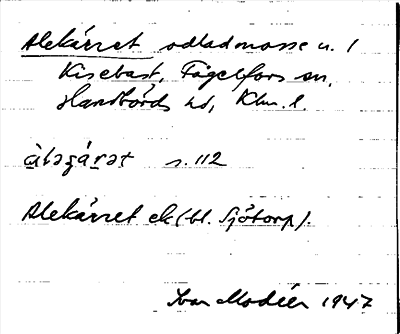 Alekärret odlad mosse u. 1
Kisebast, Fågelfors sn,
Handbörds hd, Klm. l.
s. 112
Alekärret ek (bl. Sjötorp).
Ivar Modéer 1947